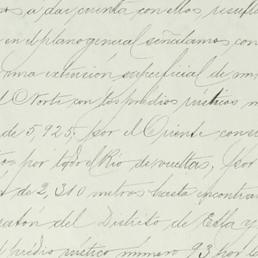 a dar cuenta con ellos
en el plano general señalamos con
una extensión superficial de m
Norte con los predios rústicos
de 5,925; por el Oriente con
por todo el Rio de vueltas, por
de 2,310 metros hasta encontra
del Distrito de Etla y
predio rústico número 93 por